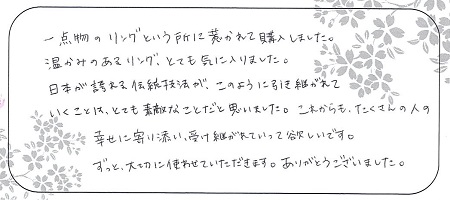 一点物のリングという所に惹かれて購入しました。
温かみのあるリング、とても気に入りました。
日本が誇る伝統技法が、このように引き継がれて
いくことは、とても素敵なことだと思いました。これからも、たくさんの人の
幸せに寄り添い、受け継がれていって欲しいです。
ずっと、大切に使わせていただきます。ありがとうございました。